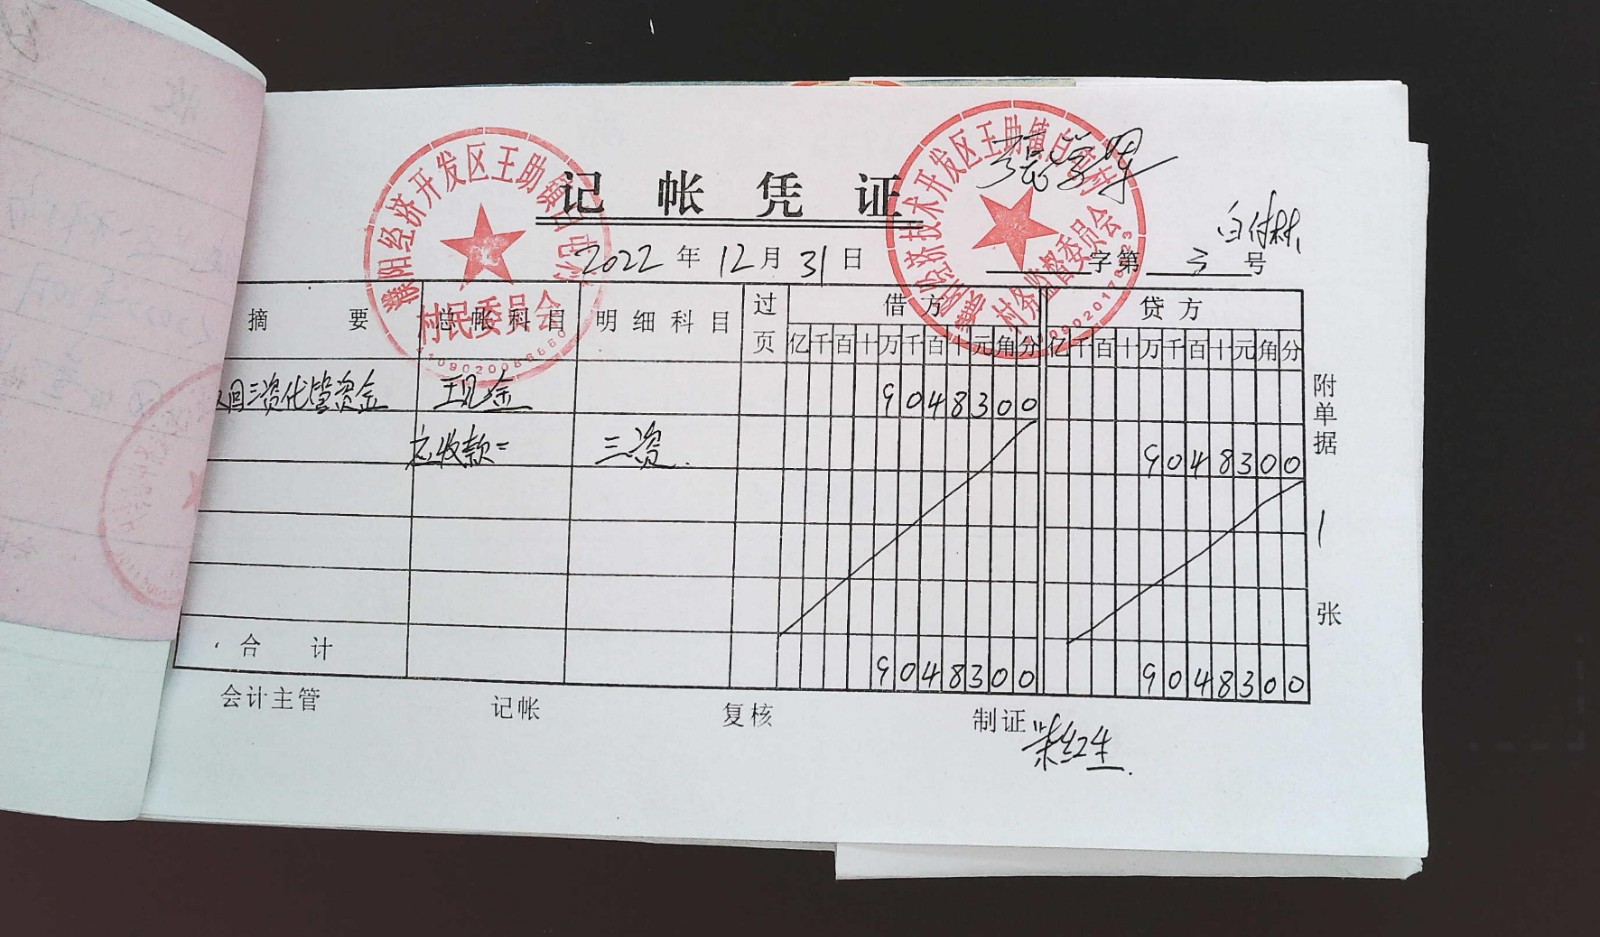 记帐凭证
2022年12月31日
字第3号
摘要 总帐科目 明细科目 过页 借方 贷方
亿千百十万千百十元角分 亿千百十万千百十元角分
回三资代管资金 现金 9048300
应收款= 三资 9048300
合计 9048300 9048300
附单据1张
会计主管 记帐 复核 制证
濮阳经济开发区王助镇
村民委员会
技术开发区王助镇
村务监督委员会